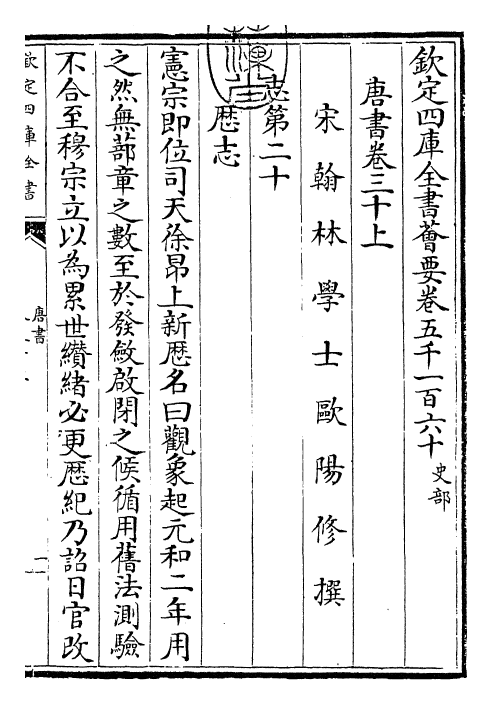 欽定四庫全書薈要卷五千一百六十 史部
唐書卷三十上
宋翰林學士歐陽修撰
志第二十
厯志
憲宗即位司天徐昂上新厯名曰觀象起元和二年用
之然無蔀章之數至於發斂啟閉之候循用舊法測驗
不合至穆宗立以為累世纘緒必更厯紀乃詔日官改
欽定四庫全書
唐書